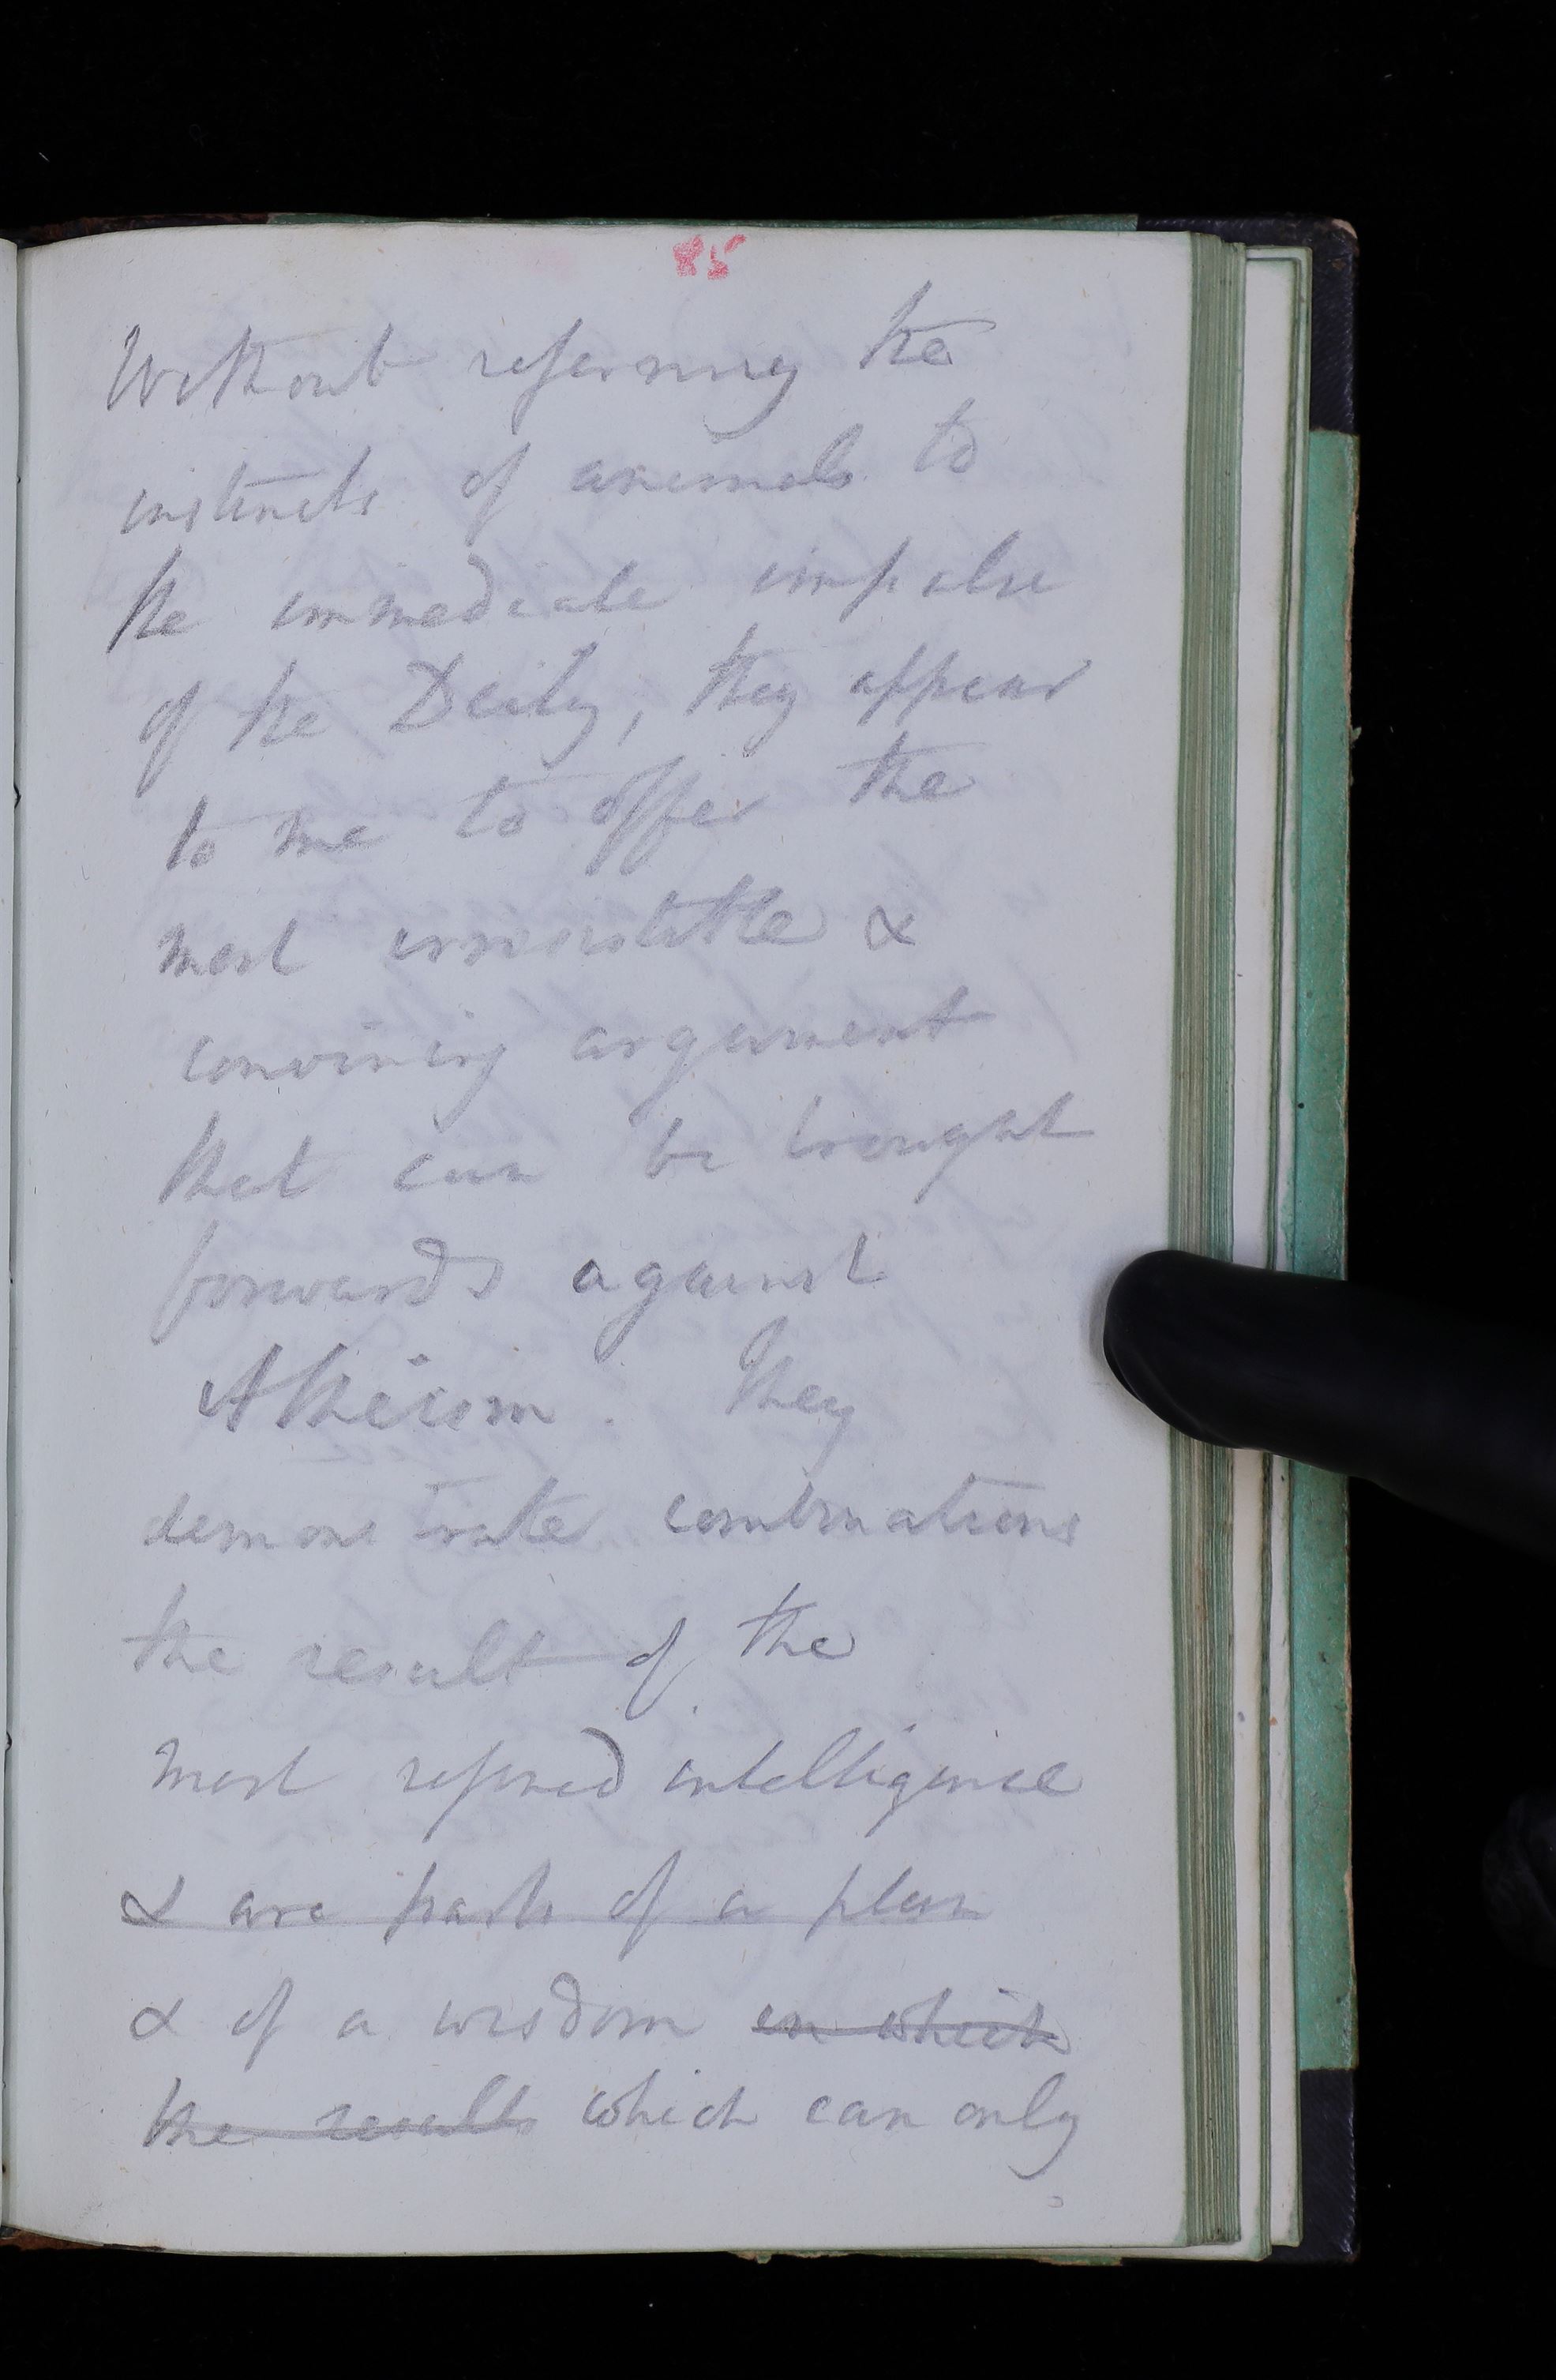 85
Without referring the
instincts of animals to
the immediate impulse
of the Deity, they appear
to me to offer the
most irresistible &
convincing argument
that can be brought
forwards against
Atheism. They
demonstrate combinations
the result of the
most refined intelligence
& are parts of a plan
& of a wisdom in which
the results which can only